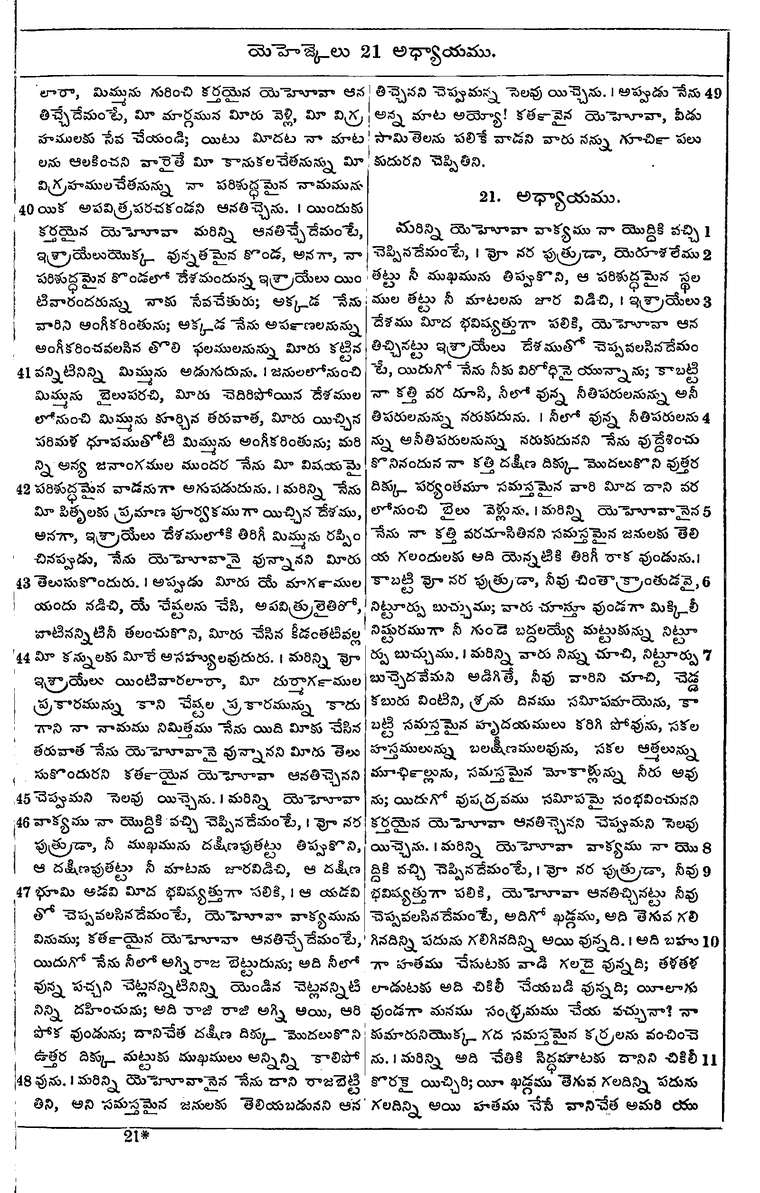 యెహెజ్కేలు 21 అధ్యాయము.
లారా, మిమ్మును గురించి కర్తయైన యెహోవా ఆన
తిచ్చేదేమంటే, మీ మార్గమున మీరు వెళ్లి, మీ విగ్ర
హములకు సేవ చేయండి; యిటు మీదట నా మాట
లను ఆలకించని వారైతే మీ కానుకలచేతనున్ను మీ
విగ్రహములచేతనున్ను నా పరిశుద్ధమైన నామమును
40 యిక అపవిత్రపరచకండని ఆనతిచ్చెను. । యిందుకు
కర్తయైన యెహోవా మరిన్ని ఆనతిచ్చేదేమంటే,
ఇశ్రాయేలుయొక్క వున్నతమైన కొండ, అనగా, నా
పరిశుద్ధమైన కొండలో దేశమందున్న ఇశ్రాయేలు యిం
టివారందరున్ను నాకు సేవచేతురు; అక్కడ నేను
వారిని అంగీకరింతును; అక్కడ నేను అర్పణలనున్ను
అంగీకరించవలసిన తొలి ఫలములనున్ను మీరు కట్టిన
41 వన్నిటినిన్ని మిమ్మును అడుగుదును. । జనులలోనుంచి
మిమ్మును బైలుపరచి, మీరు చెదిరిపోయిన దేశముల
లోనుంచి మిమ్మును కూర్చిన తరువాత, మీరు యిచ్చిన
పరిమళ ధూపముతోటి మిమ్మును అంగీకరింతును; మరి
న్ని అన్య జనాంగముల ముందర నేను మీ విషయమై
42 పరిశుద్ధమైన వాడనుగా అగుపడుదును. । మరిన్ని నేను
మీ పితృలకు ప్రమాణ పూర్వకముగా యిచ్చిన దేశము,
అనగా, ఇశ్రాయేలు దేశములోకి తిరిగీ మిమ్మును రప్పిం
చినప్పుడు, నేను యెహోవానై వున్నానని మీరు
43 తెలుసుకొందురు. । అప్పుడు మీరు యే మార్గముల
యందు నడిచి, యే చేష్టలను చేసి, అపవిత్రులైతిరో,
వాటినన్నిటినీ తలంచుకొని, మీరు చేసిన కీడంతటివల్ల
44 మీ కన్నులకు మీరే అసహ్యులవుదురు. । మరిన్ని వోా
ఇశ్రాయేలు యింటివారలారా, మీ దుర్మార్గముల
ప్రకారమున్ను కాని చేష్టల ప్రకారమున్ను కాదు
గాని నా నామము నిమిత్తము నేను యిది మీకు చేసిన
తరువాత నేను యెహోవానై వున్నానని మీరు తెలు
సుకొందురని కర్తయైన యెహోవా ఆనతిచ్చెనని
45 చెప్పమని సెలవు యిచ్చెను. । మరిన్ని యెహోవా
46 వాక్యము నా యొద్దికి వచ్చి చెప్పినదేమంటే, । వోా నర
పుత్రుడా, నీ ముఖమును దక్షిణపుతట్టు తిప్పుకొని,
ఆ దక్షిణపుతట్టు నీ మాటను జారవిడిచి, ఆ దక్షిణ
47 భూమి అడవి మీద భవిష్యత్తుగా పలికి, । ఆ యడవి
తో చెప్పవలసినదేమంటే, యెహోవా వాక్యమును
వినుము; కర్తయైన యెహోవా ఆనతిచ్చేదేమంటే,
యిదుగో నేను నీలో అగ్ని రాజ బెట్టుదును; అది నీలో
వున్న పచ్చని చెట్లనన్నిటినిన్ని యెండిన చెట్లనన్నిటి
నిన్ని దహించును; అది రాజి రాజి అగ్ని అయి, ఆరి
పోక వుండును; దానిచేత దక్షిణ దిక్కు మొదలుకొని
ఉత్తర దిక్కు మట్టుకు ముఖములు అన్నిన్ని కాలిపో
48 వును. । మరిన్ని యెహోవానైన నేను దాని రాజబెట్టి
తిని, అని సమస్తమైన జనులకు తెలియబడునని ఆన
తిచ్చెనని చెప్పుమన్న సెలవు యిచ్చెను. । అప్పుడు నేను 49
అన్న మాట అయ్యో! కర్తవైన యెహోవా, వీడు
సామితెలను పలికే వాడని వారు నన్ను గూర్చి పలు
కుదురని చెప్పితిని.
21. అధ్యాయము.
మరిన్ని యెహోవా వాక్యము నా యొద్దికి వచ్చి 1
చెప్పినదేమంటే, । వోా నర పుత్రుడా, యెరూశలేము 2
తట్టు నీ ముఖమును తిప్పుకొని, ఆ పరిశుద్ధమైన స్థల
ముల తట్టు నీ మాటలను జార విడిచి, । ఇశ్రాయేలు 3
దేశము మీద భవిష్యత్తుగా పలికి, యెహోవా ఆన
తిచ్చినట్టు ఇశ్రాయేలు దేశముతో చెప్పవలసినదేమం
టే, యిదుగో నేను నీకు విరోధినై యున్నాను; కాబట్టి
నా కత్తి వర దూసి, నీలో వున్న నీతిపరులనున్ను అనీ
తిపరులనున్ను నరుకుదును. । నీలో వున్న నీతిపరులను 4
న్ను అనీతిపరులనున్ను నరుకుదునని నేను వుద్దేశించు
కొనినందున నా కత్తి దక్షిణ దిక్కు మొదలుకొని వుత్తర
దిక్కు పర్యంతమూ సమస్తమైన వారి మీద దాని వర
లోనుంచి బైలు వెళ్లును. । మరిన్ని యెహోవానైన 5
నేను నా కత్తి వరదూసితినని సమస్తమైన జనులకు తెలి
య గలందులకు అది యెన్నటికి తిరిగీ రాక వుండును. ।
కాబట్టి వోా నర పుత్రుడా, నీవు చింతాక్రాంతుడవై, 6
నిట్టూర్పు బుచ్చుము; వారు చూస్తూ వుండగా మిక్కిలీ
నిష్ఠురముగా నీ గుండె బద్దలయ్యే మట్టుకున్ను నిట్టూ
ర్పు బుచ్చుము. । మరిన్ని వారు నిన్ను చూచి, నిట్టూర్పు 7
బుచ్చెదవేమని అడిగితే, నీవు వారిని చూచి, చెడ్డ
కబురు వింటిని, శ్రమ దినము సమీపమాయెను, కా
బట్టి సమస్తమైన హృదయములు కరిగి పోవును, సకల
హస్తములున్ను బలక్షీణములవును, సకల ఆత్మలున్ను
మూర్ఛిల్లును, సమస్తమైన మోకాళ్లున్ను నీరు అవు
ను; యిదుగో వుపద్రవము సమీపమై సంభవించునని
కర్తయైన యెహోవా ఆనతిచ్చెనని చెప్పుమని సెలవు
యిచ్చెను. । మరిన్ని యెహోవా వాక్యము నా యొ 8
ద్దికి వచ్చి చెప్పినదేమంటే, । వోా నర పుత్రుడా, నీవు 9
భవిష్యత్తుగా పలికి, యెహోవా ఆనతిచ్చినట్టు నీవు
చెప్పవలసినదేమంటే, అదిగో ఖడ్గము, అది తెగువ గలి
గినదిన్ని పదును గలిగినదిన్ని అయి వున్నది. । అది బహు 10
గా హతము చేసుటకు వాడి గలదై వున్నది; తళతళ
లాడుటకు అది చికిలీ చేయబడి వున్నది; యీలాగు
వుండగా మనము సంభ్రమము చేయ వచ్చునా? నా
కుమారునియొక్క గద సమస్తమైన కర్రలను వంచించె
ను. । మరిన్ని అది చేతికి సిద్ధమౌటకు దానిని చికిలీ 11
కొరకై యిచ్చిరి; యీ ఖడ్గము తెగువ గలదిన్ని పదును
గలదిన్ని అయి హతము చేసే వానిచేత అమరి యు
21*